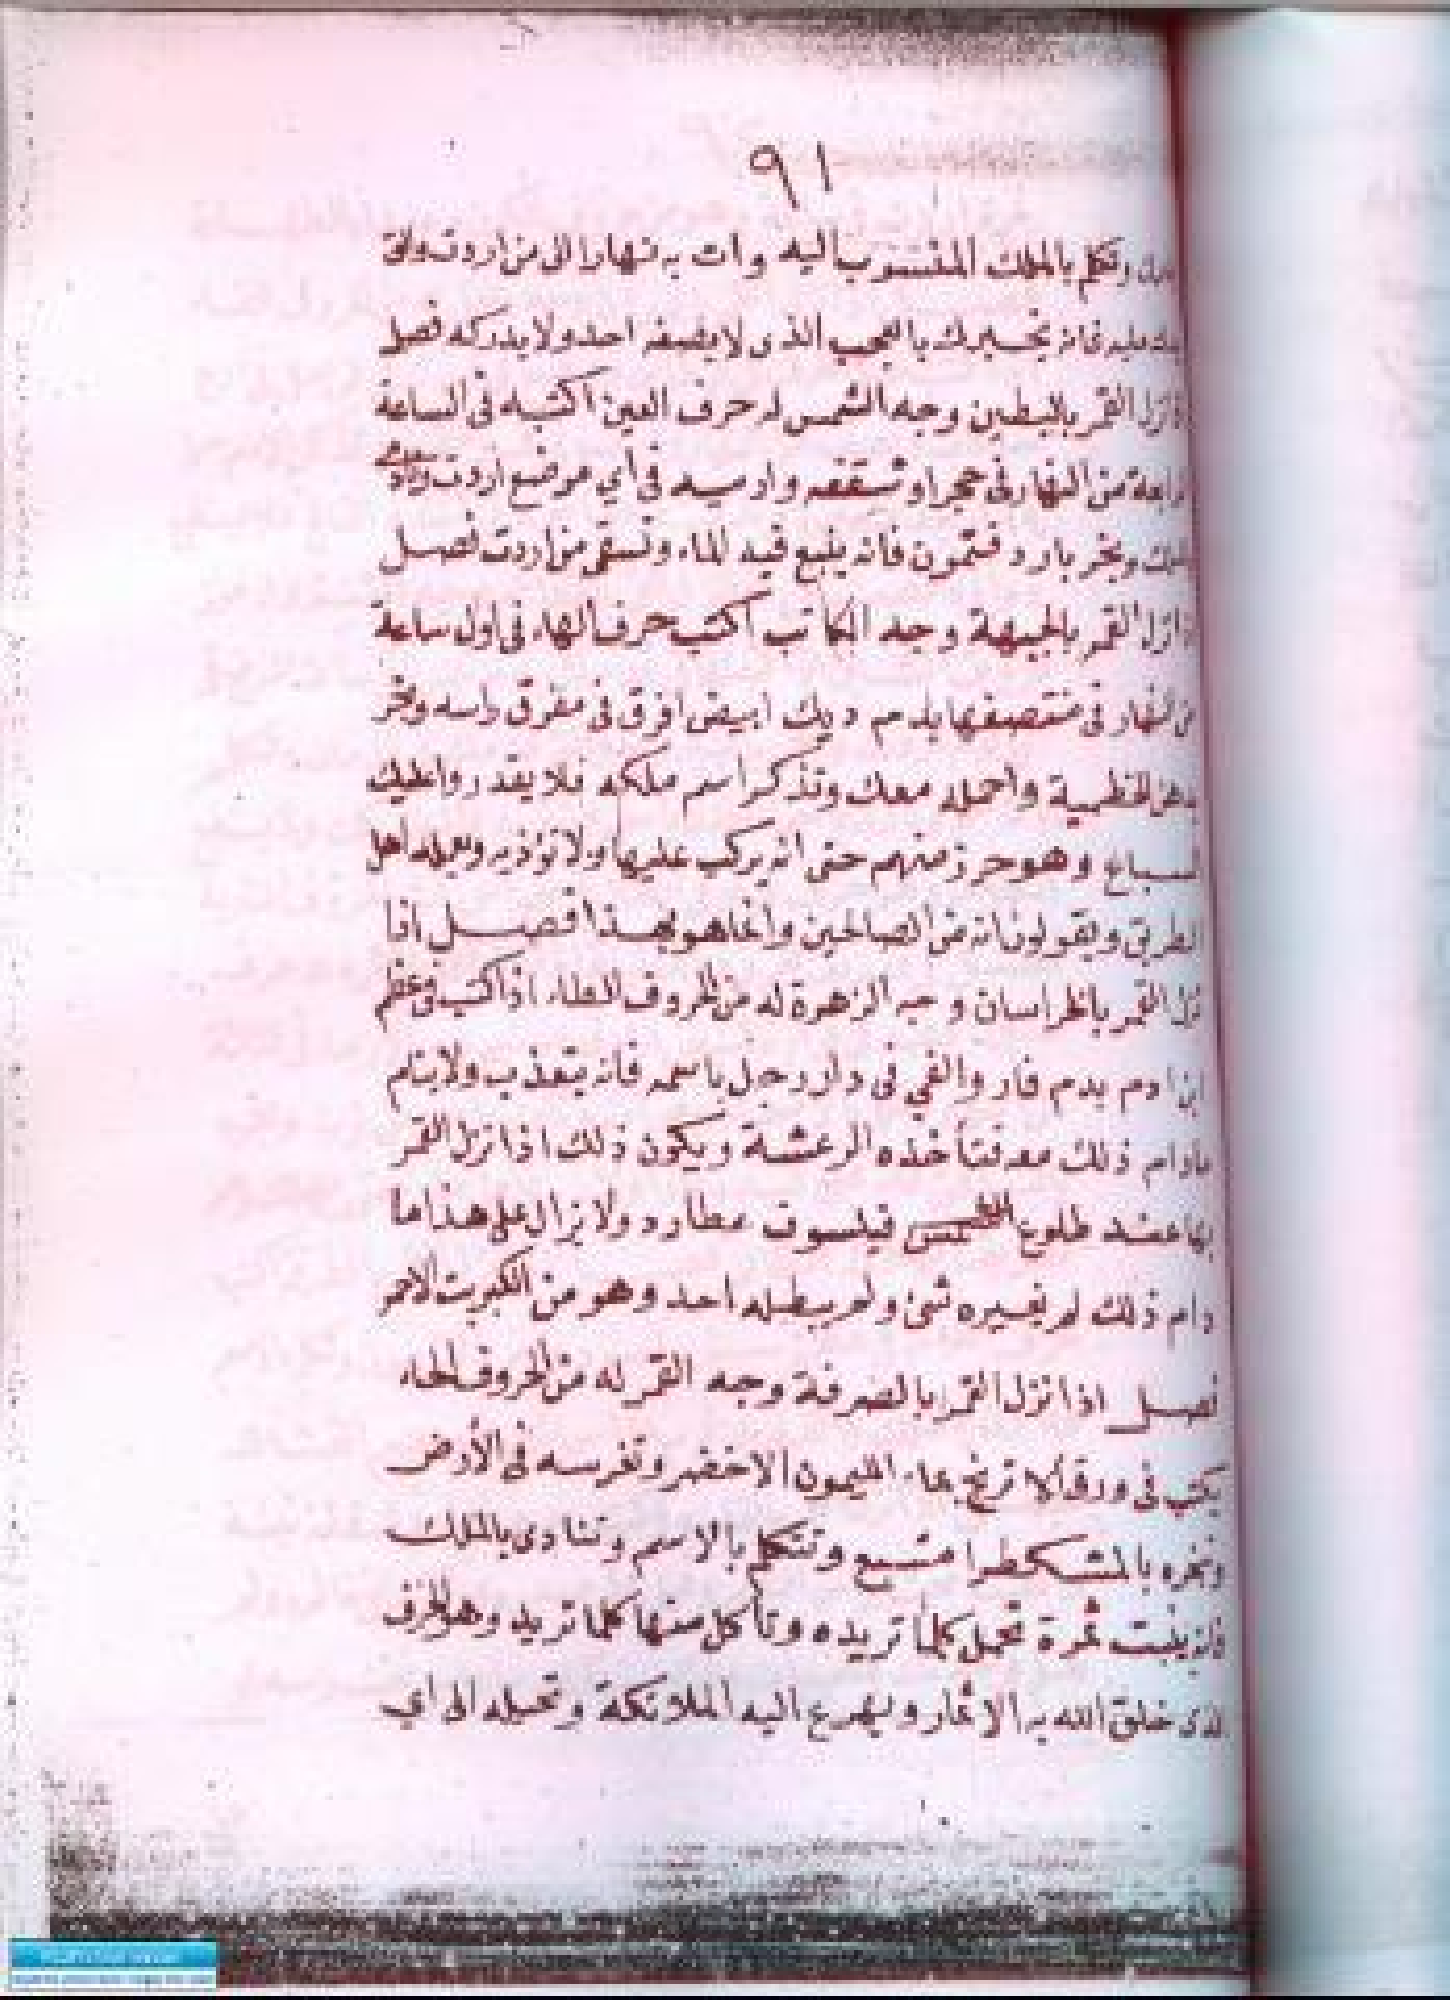 ٩١
وتكلم بالملك المنسوب اليه وات به نهارا الى من اردت والق
يخبرك بالعجب الذى لا يصفه احد ولا يدركه فصل
نزل القمر بالبطين وجه الشمس له حرف العين اكتبه فى الساعة
من النهار فى حجر او شقفه وارميه فى أي موضع اردت
وبخر بارد فتمون فانه ينبع فيه الماء وتسقى من اردت فصل
نزل القمر بالجبهة وجه الكاتب اكتب حرف الهاء فى اول ساعة
من النهار فى منتصفها بدم ديك ابيض افرق فى مفرق راسه وبخر
واحمله معك وتذكر اسم ملكه فلا يقدروا عليك
السباع وهو حرز منهم حتى انه يركب عليها ولا تؤذيه ويعمله اهل
الطريق ويقولون انه من الصالحين وانما هو بهذا فصل اذا
نزل القمر بالخراسان وجه الزهرة له من الحروف الطاء اذا كتب فى عظم
ابن ادم بدم فار والقي فى دار رجل باسمه فانه يتعذب ولا ينام
مادام ذلك معه فتأخذه الرعشة ويكون ذلك اذا نزل القمر
بها عند طلوع الشمس فيلسوف عطارد ولا يزال على هذا ما
دام ذلك لم يغيره شئ ولم يبطله احد وهو من الكبريت الاحمر
فصل اذا نزل القمر بالصرفة وجه القمر له من الحروف الحاء
يكتب فى ورق الاترنج بماء الليمون الاخضر وتغرسه فى الأرض
وتبخره بالمشكطرا مشيع وتتكلم بالاسم وتنادى بالملك
فانه ينبت ثمرة تحمل كلما تريده وتأكل منها كلما تريد وهو الحرف
الذى خلق الله به الاثمار وليهرع اليه الملائكة وتحيله الى اي